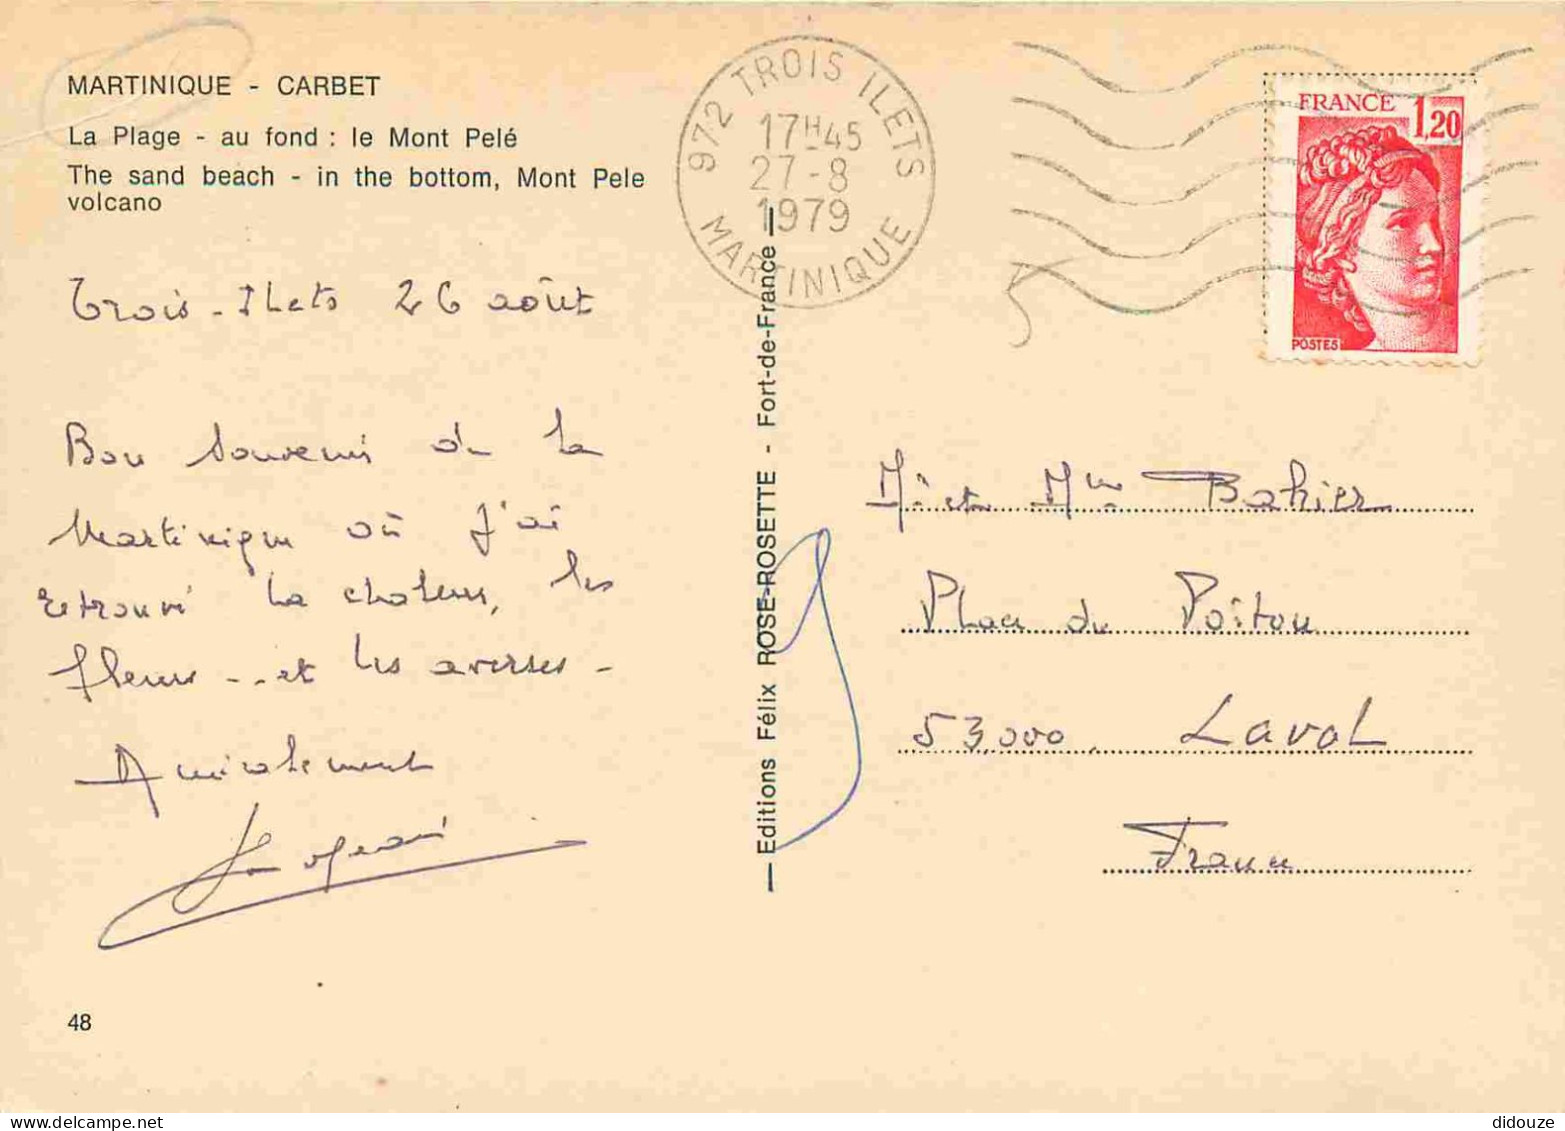 MARTINIQUE - CARBET
La Plage - au fond : le Mont Pelé
The sand beach - in the bottom, Mont Pele
volcano
Trois-Ilets 26 août
Bon souvenir de la
Martinique où j'ai
retrouvé la chaleur, les
fleurs... et les averses -
Amicalement
48
— Editions Félix ROSE-ROSETTE - Fort-de-France —
972 TROIS ILETS
17H45
27-8
1979
MARTINIQUE
FRANCE 1,20
POSTES
Mr et Mme Bahier
Place du Poitou
53000 Laval
France
didouze